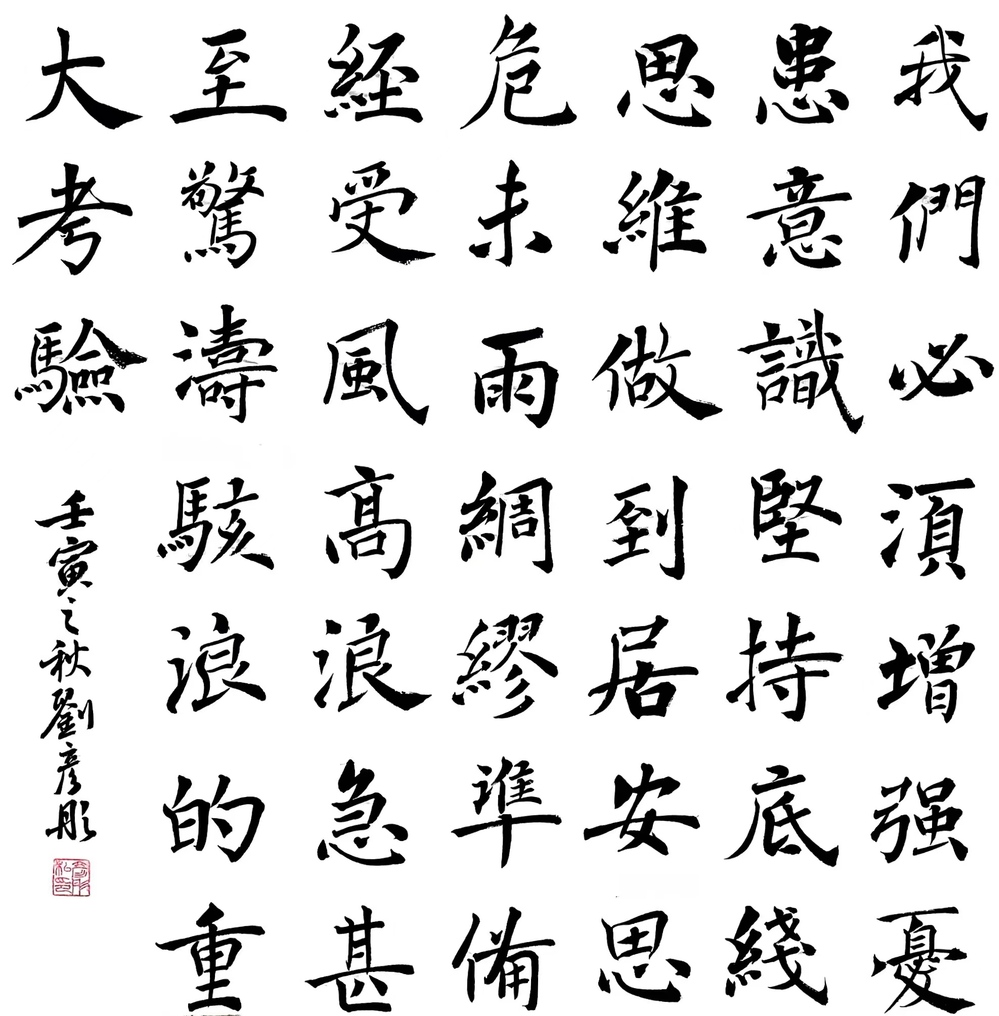 我們必須增强憂
患意識堅持底綫
思維做到居安思
危未雨綢繆準備
經受風高浪急甚
至驚濤駭浪的重
大考驗
壬寅之秋劉彦彤
彦彤私印